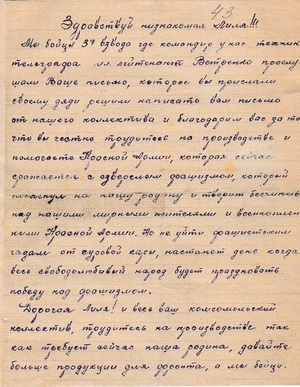 43
Здравствуй незнакомая Лиля!!!
Мы бойцы 3го взвода где командир у нас техник
телеграфа мл лейтенант Востресно прослу
шали Ваше письмо, которое вы прислали
своему дяди решили написать вам письмо
от нашего коллектива и благодарим вас за то
что вы честно трудитесь на производстве и
помогаете Красной Армии, которая сейчас
сражается с озверелым фашизмом, который
посягнул на нашу родину и творит бесчинства
над нашими мирными жителями и военноплен
ными Красной Армии. Но не уйти фашистским
гадам от судовой кары, настанет день когда
весь свободолюбивый народ будет праздновать
победу над фашизмом.
Дорогая Лиля! и весь ваш комсомольский
коллектив, трудитесь на производстве так
как требует сейчас наша родина, давайте
больше продукции для фронта, а мы бойцы.